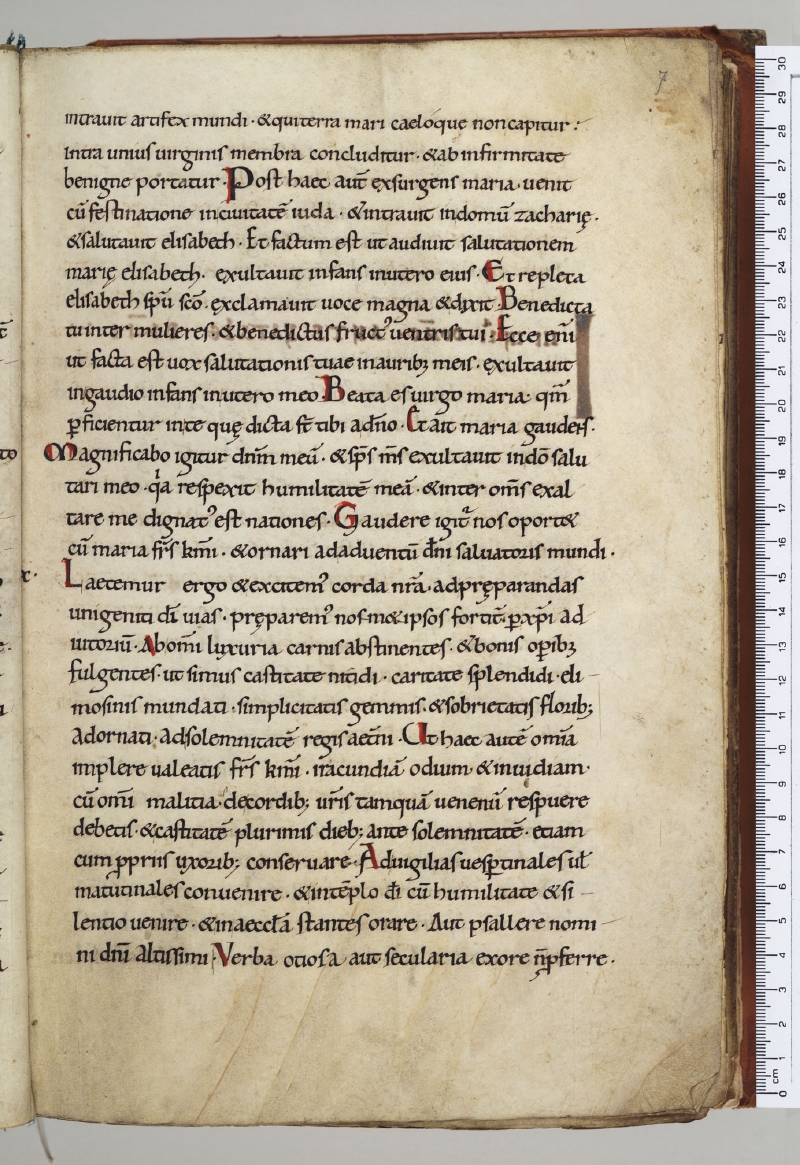 7
intrauit artifex mundi · & qui terra mari caeloque non capitur :·
intra unius uirginis membra concluditur · & ab infirmitate
benigne portatur · Post haec aut̄ exsurgens maria · uenit
cū festinatione in ciuitatē iuda · & intrauit in domū zacharię ·
& salutauit elisabeth · Et factum est ut audiuit salutationem
marię elisabeth · exultauit infans in utero eius · Et repleta
elisabeth spū sc̄o · exclamauit uoce magna & dixit · Benedicta
tu inter mulieres · & benedictus fruct᾽ uentris tui · Ecce eni͂
ut facta est uox salutationis tuae in aurib; meis · exultauit
in gaudio infans in utero meo · Beata es uirgo maria · qm̄
ꝑficientur in te quę dicta st̄ tibi a dn̄o · Et ait maria gaudens ·
Magnificabo igitur dnm̄ meū · & sp̄s ms̄ exultauit in dō salu
tari meo · qia respexit humilitatē meā · & inter om̄s exal
tare me dignat᾽ est nationes · Gaudere igit᷑ nos oport&
cū maria frs̄ km̄i · & ornari ad aduentū dn̄i saluatoris mundi ·
Laetemur ergo & excitem᾽ corda nrā · ad pręparandas
unigeniti dī uias · pręparem᾽ nosm&ipsos fortit̄ · ꝑ xp̄i ad
iutoriū · Ab om̄i luxuria carnis abstinentes · & bonis oꝑib;
fulgentes · ut simus castitate nitidi · caritate splendidi · eli
mosinis mundati · simplicitatis gemmis · & sobrietatis florib;
adornati · ad solemnitatē regis aet̄ni · Ut haec autē om̄ia
implere ualeatis frs̄ km̄i · iracundiā odium · & inuidiam ·
cū om̄i malitia · de cordib; ur̄is tamquā uenenū respuere
debetis · & castitatē plurimis dieb; ante solemnitatē · etiam
cum ꝓpriis uxorib; conseruare · Ad uigilias uesꝑtinales ul̄
matutinales conuenire · & in tēplo dī cū humilitate & si
lentio uenire · & in aeccl̄a stantes orare · Aut psallere nomi
ni dn̄i altissimi · Verba otiosa aut secularia ex ore n̄ ꝓferre ·